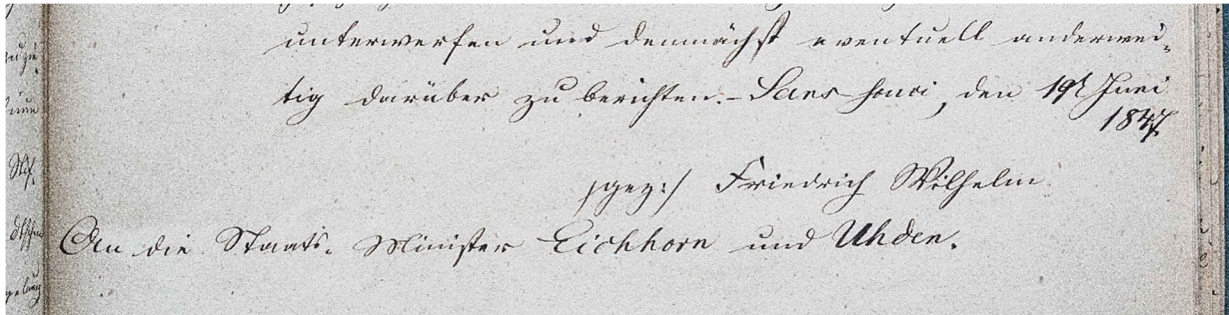 unterwerfen und demnächst eventuell anderwei-
tig darüber zu berichten. – Sans-souci, den 19t Juni
1847.
/:gez:/ Friedrich Wilhelm.
An die Staats-Minister Eichhorn und Uhden.